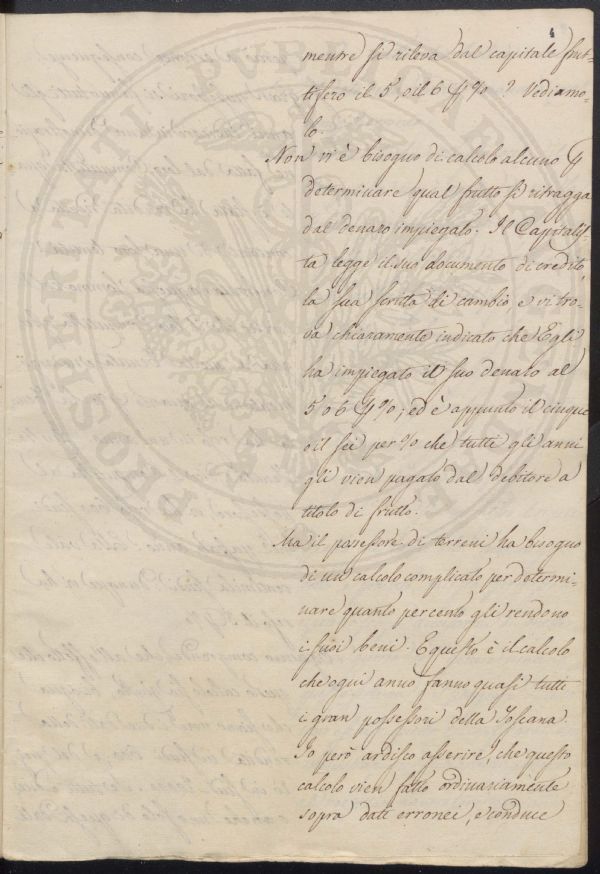 4
mentre si rileva dal capitale frut-
tifero il 5, o il 6 p% ? Vediamo-
lo.
Non vi è bisogno di calcolo alcuno p
determinare qual frutto si ritragga
dal denaro impiegato. Il Capitalis-
ta legge il suo documento di credito,
la sua scritta di cambio e vi tro-
va chiaramente indicato che Egli
ha impiegato il suo denaro al
5 o 6 p%; ed è appunto il cinque
o il sei per % che tutti gli anni
gli vien pagato dal debitore a
titolo di frutto.
Ma il possessore di terreni ha bisogno
di un calcolo complicato per determi-
nare quanto per cento gli rendono
i suoi beni. E questo è il calcolo
che ogni anno fanno quasi tutti
i gran possessori della Toscana.
Io però ardisco asserire, che questo
calcolo vien fatto ordinariamente
sopra dati erronei, e conduce